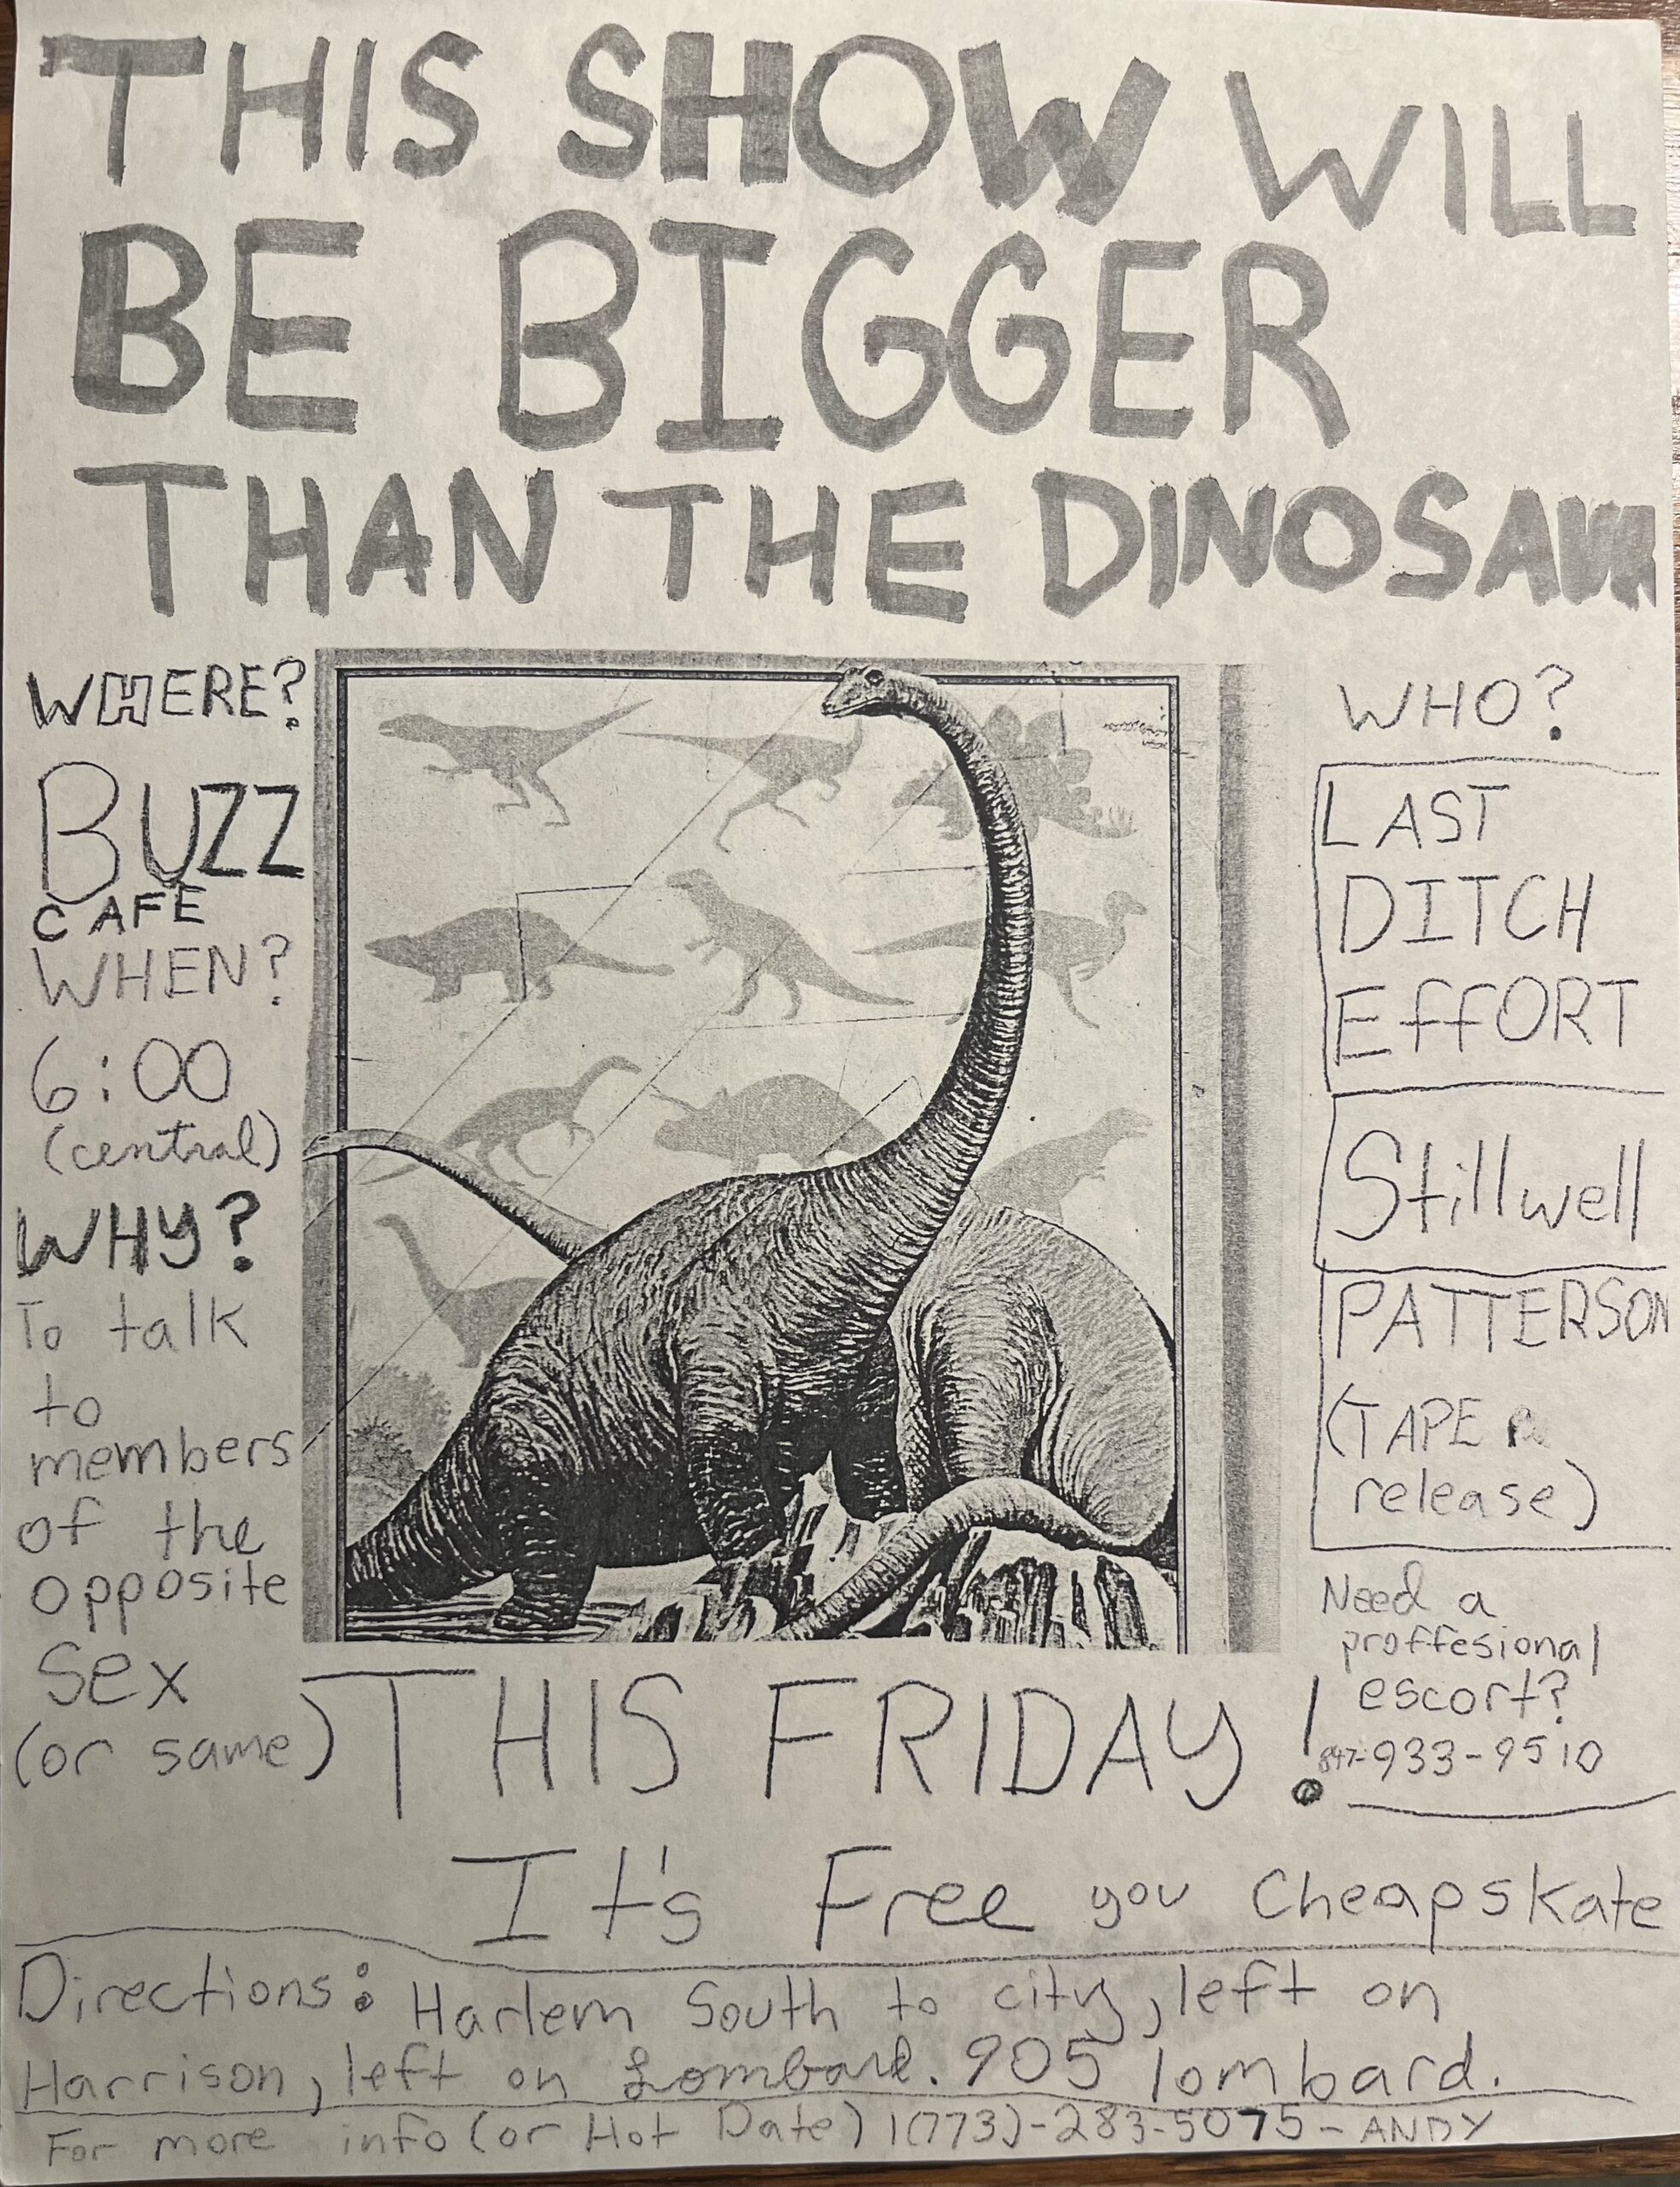 THIS SHOW WILL
BE BIGGER
THAN THE DINOSAUR
WHERE?
BUZZ
CAFE
WHEN?
6:00
(central)
WHY?
To talk
to
members
of the
opposite
Sex
(or same)
WHO?
LAST
DITCH
EffORT
Stillwell
PATTERSON
(TAPE
release)
Need a
proffesional
escort?
847-933-9510
THIS FRIDAY!
It's Free you Cheapskate
Directions: Harlem South to city, left on
Harrison, left on Lombard. 905 lombard.
For more info (or Hot Date) 1(773)-283-5075-ANDY